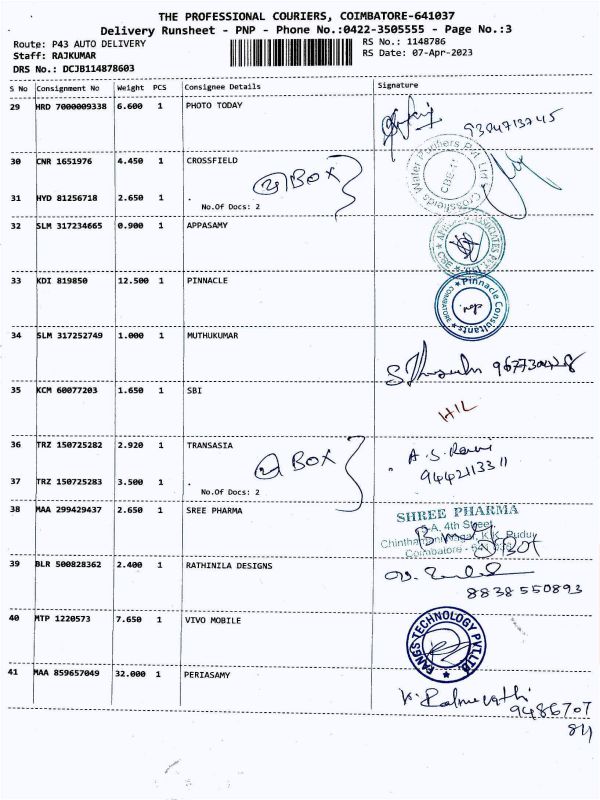 THE PROFESSIONAL COURIERS, COIMBATORE-641037
Delivery Runsheet - PNP - Phone No.:0422-3505555 - Page No.:3
Route: P43 AUTO DELIVERY
RS No.: 1148786
Staff: RAJKUMAR
RS Date: 07-Apr-2023
DRS No.: DCJB114878603
S No Consignment No Weight PCS Consignee Details Signature
29 HRD 7000009338 6.600 1 PHOTO TODAY
9304713745
30 CNR 1651976 4.450 1 CROSSFIELD
② BOX
Crossfields Water Purifiers Pvt. Ltd
CBE-11
31 HYD 81256718 2.650 1 .
No.Of Docs: 2
32 SLM 317234665 0.900 1 APPASAMY
33 KDI 819850 12.500 1 PINNACLE
Pinnacle Consultants
34 SLM 317252749 1.000 1 MUTHUKUMAR
35 KCM 60077203 1.650 1 SBI
HIL
36 TRZ 150725282 2.920 1 TRANSASIA
② BOX
A.S. Ravi
9442113311
37 TRZ 150725283 3.500 1 .
No.Of Docs: 2
38 MAA 299429437 2.650 1 SREE PHARMA
SHREE PHARMA
A, 4th Street
Chinthamani Nagar, K.K. Pudur
Coimbatore - 641 038
39 BLR 500828362 2.400 1 RATHINILA DESIGNS
8838550893
40 MTP 1220573 7.650 1 VIVO MOBILE
FANGS TECHNOLOGY PVT.LTD
41 MAA 859657049 32.000 1 PERIASAMY
9486707
84